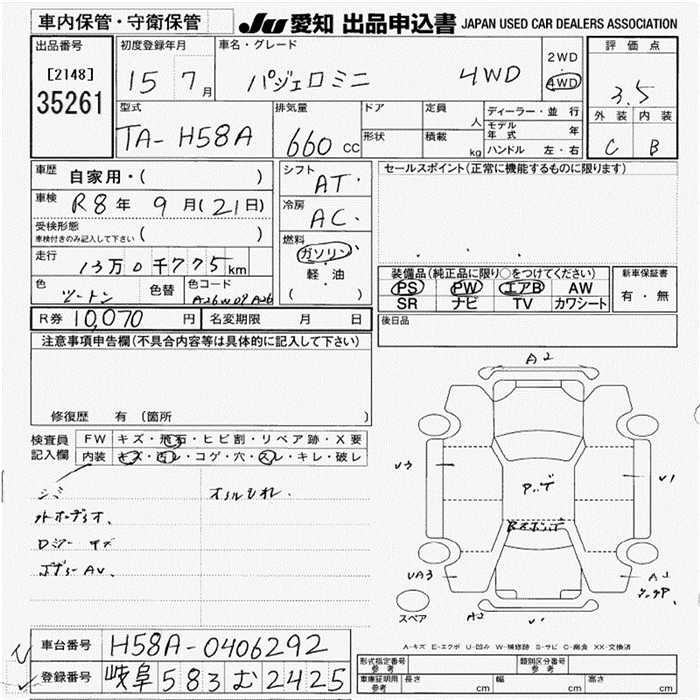 車内保管・守衛保管
JU 愛知 出品申込書 JAPAN USED CAR DEALERS ASSOCIATION
出品番号
[2148]
35261
初度登録年月
15 7月
車名・グレード
パジェロミニ 4WD
2WD
4WD
評価点
3.5
外装 内装
C B
型式
TA-H58A
排気量
660 cc
ドア
形状
定員 人
積載 kg
ディーラー・並行
モデル年式 年
ハンドル 左・右
車歴 自家用・( )
車検 R8年 9月(21日)
受検形態
車検付きのみ記入して下さい ( )
走行
13万0千775km
色 ツートン 色替
色コード
A26W09A26
シフト
AT
冷房
AC
燃料
ガソリン
軽・油
( )
セールスポイント(正常に機能するものに限ります)
装備品(純正品に限り○をつけてください)
PS PW エアB AW
SR ナビ TV カワシート
新車保証書
有・無
R券 10,070 円
名変期限 月 日
後日品
注意事項申告欄(不具合内容等は具体的に記入して下さい)
修復歴 有(箇所
検査員記入欄
FW キズ・飛石・ヒビ割・リペア跡・X要
内装 キズ・汚レ・コゲ・穴・スレ・キレ・破レ
シミ
ボデーAV.
A2
V1
UA3
A2
V1
スペア
A-キズ E-エクボ U-凹み W-補修跡 S-サビ C-腐食 XX-交換済
車台番号 H58A-0406292
登録番号 岐阜583む2425
形式指定番号 参考
類別区分番号 参考
車庫証明用 参考
長さ cm 幅 cm 高さ cm